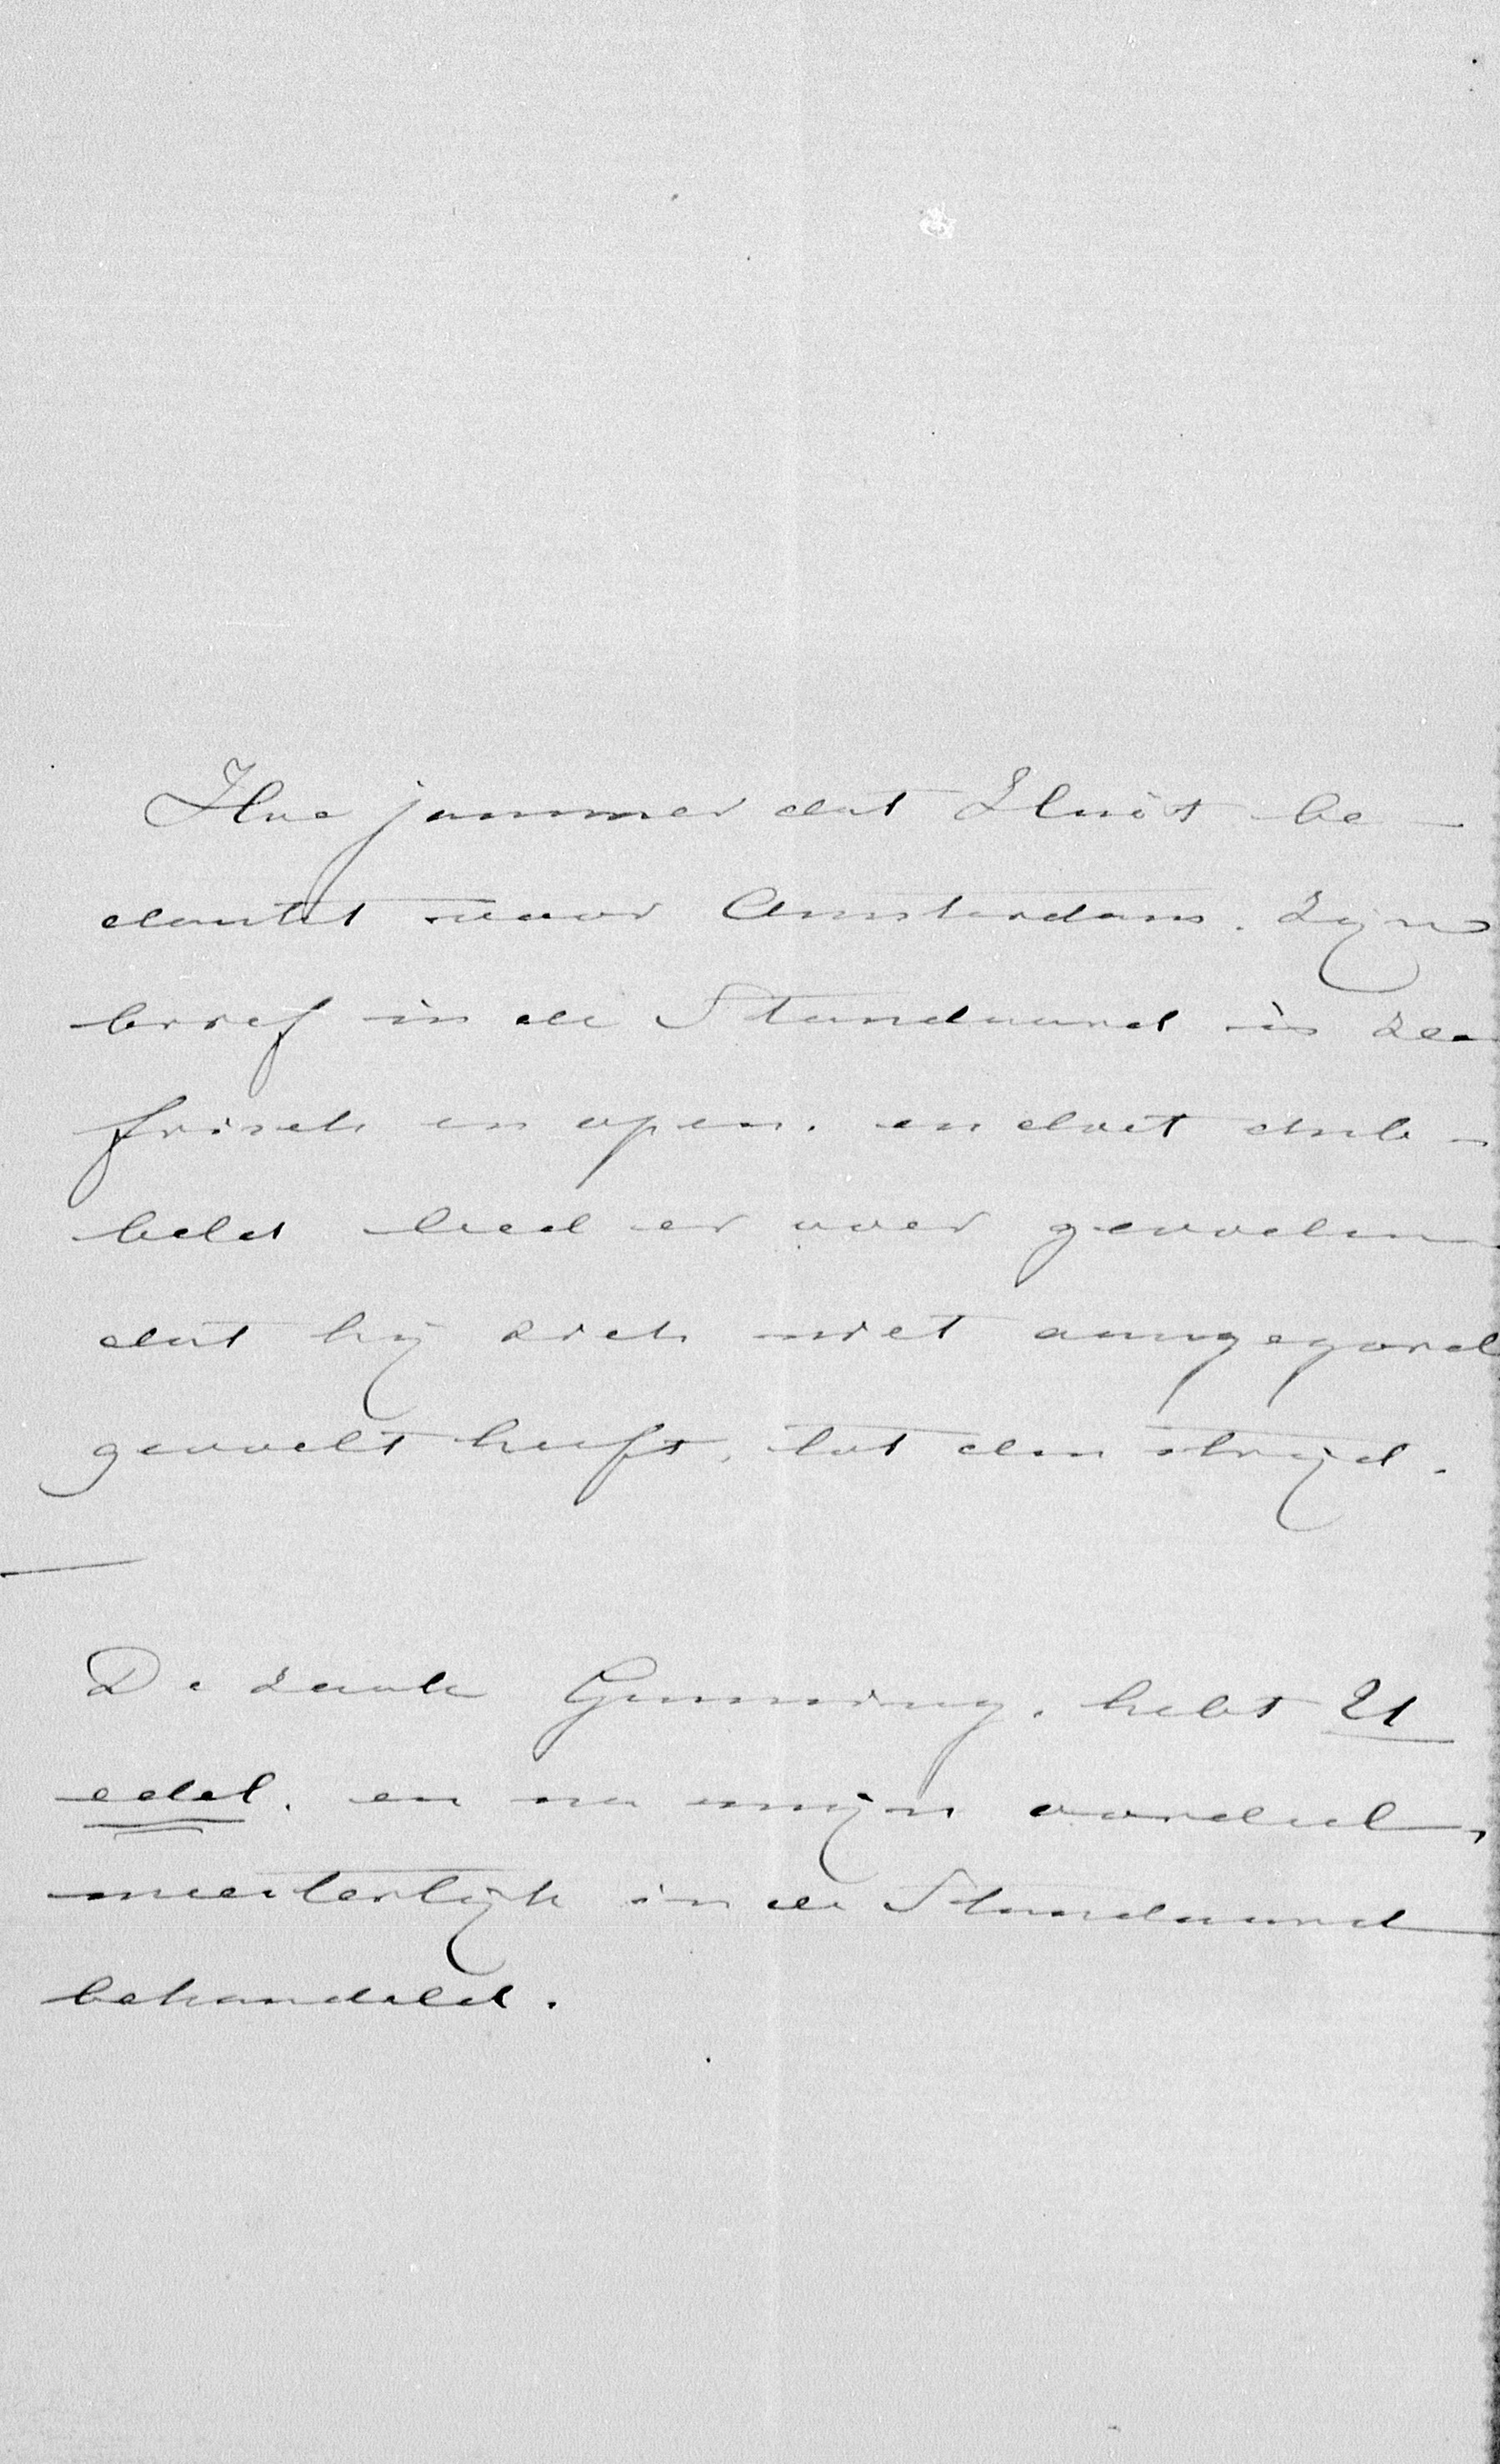 Hoe jammer dat Huët be-
dankt voor Amsterdam. Zijn
brief in de Standaard is zoo
frisch en open. en doet dub-
beld leed er over gevoelen
dat hij zich niet aangegord
gevoelt heeft, tot den strijd.
De zaak Gunning. hebt U
edel. en na mijn oordeel,
meesterlijk in de Standaard
behandeld.